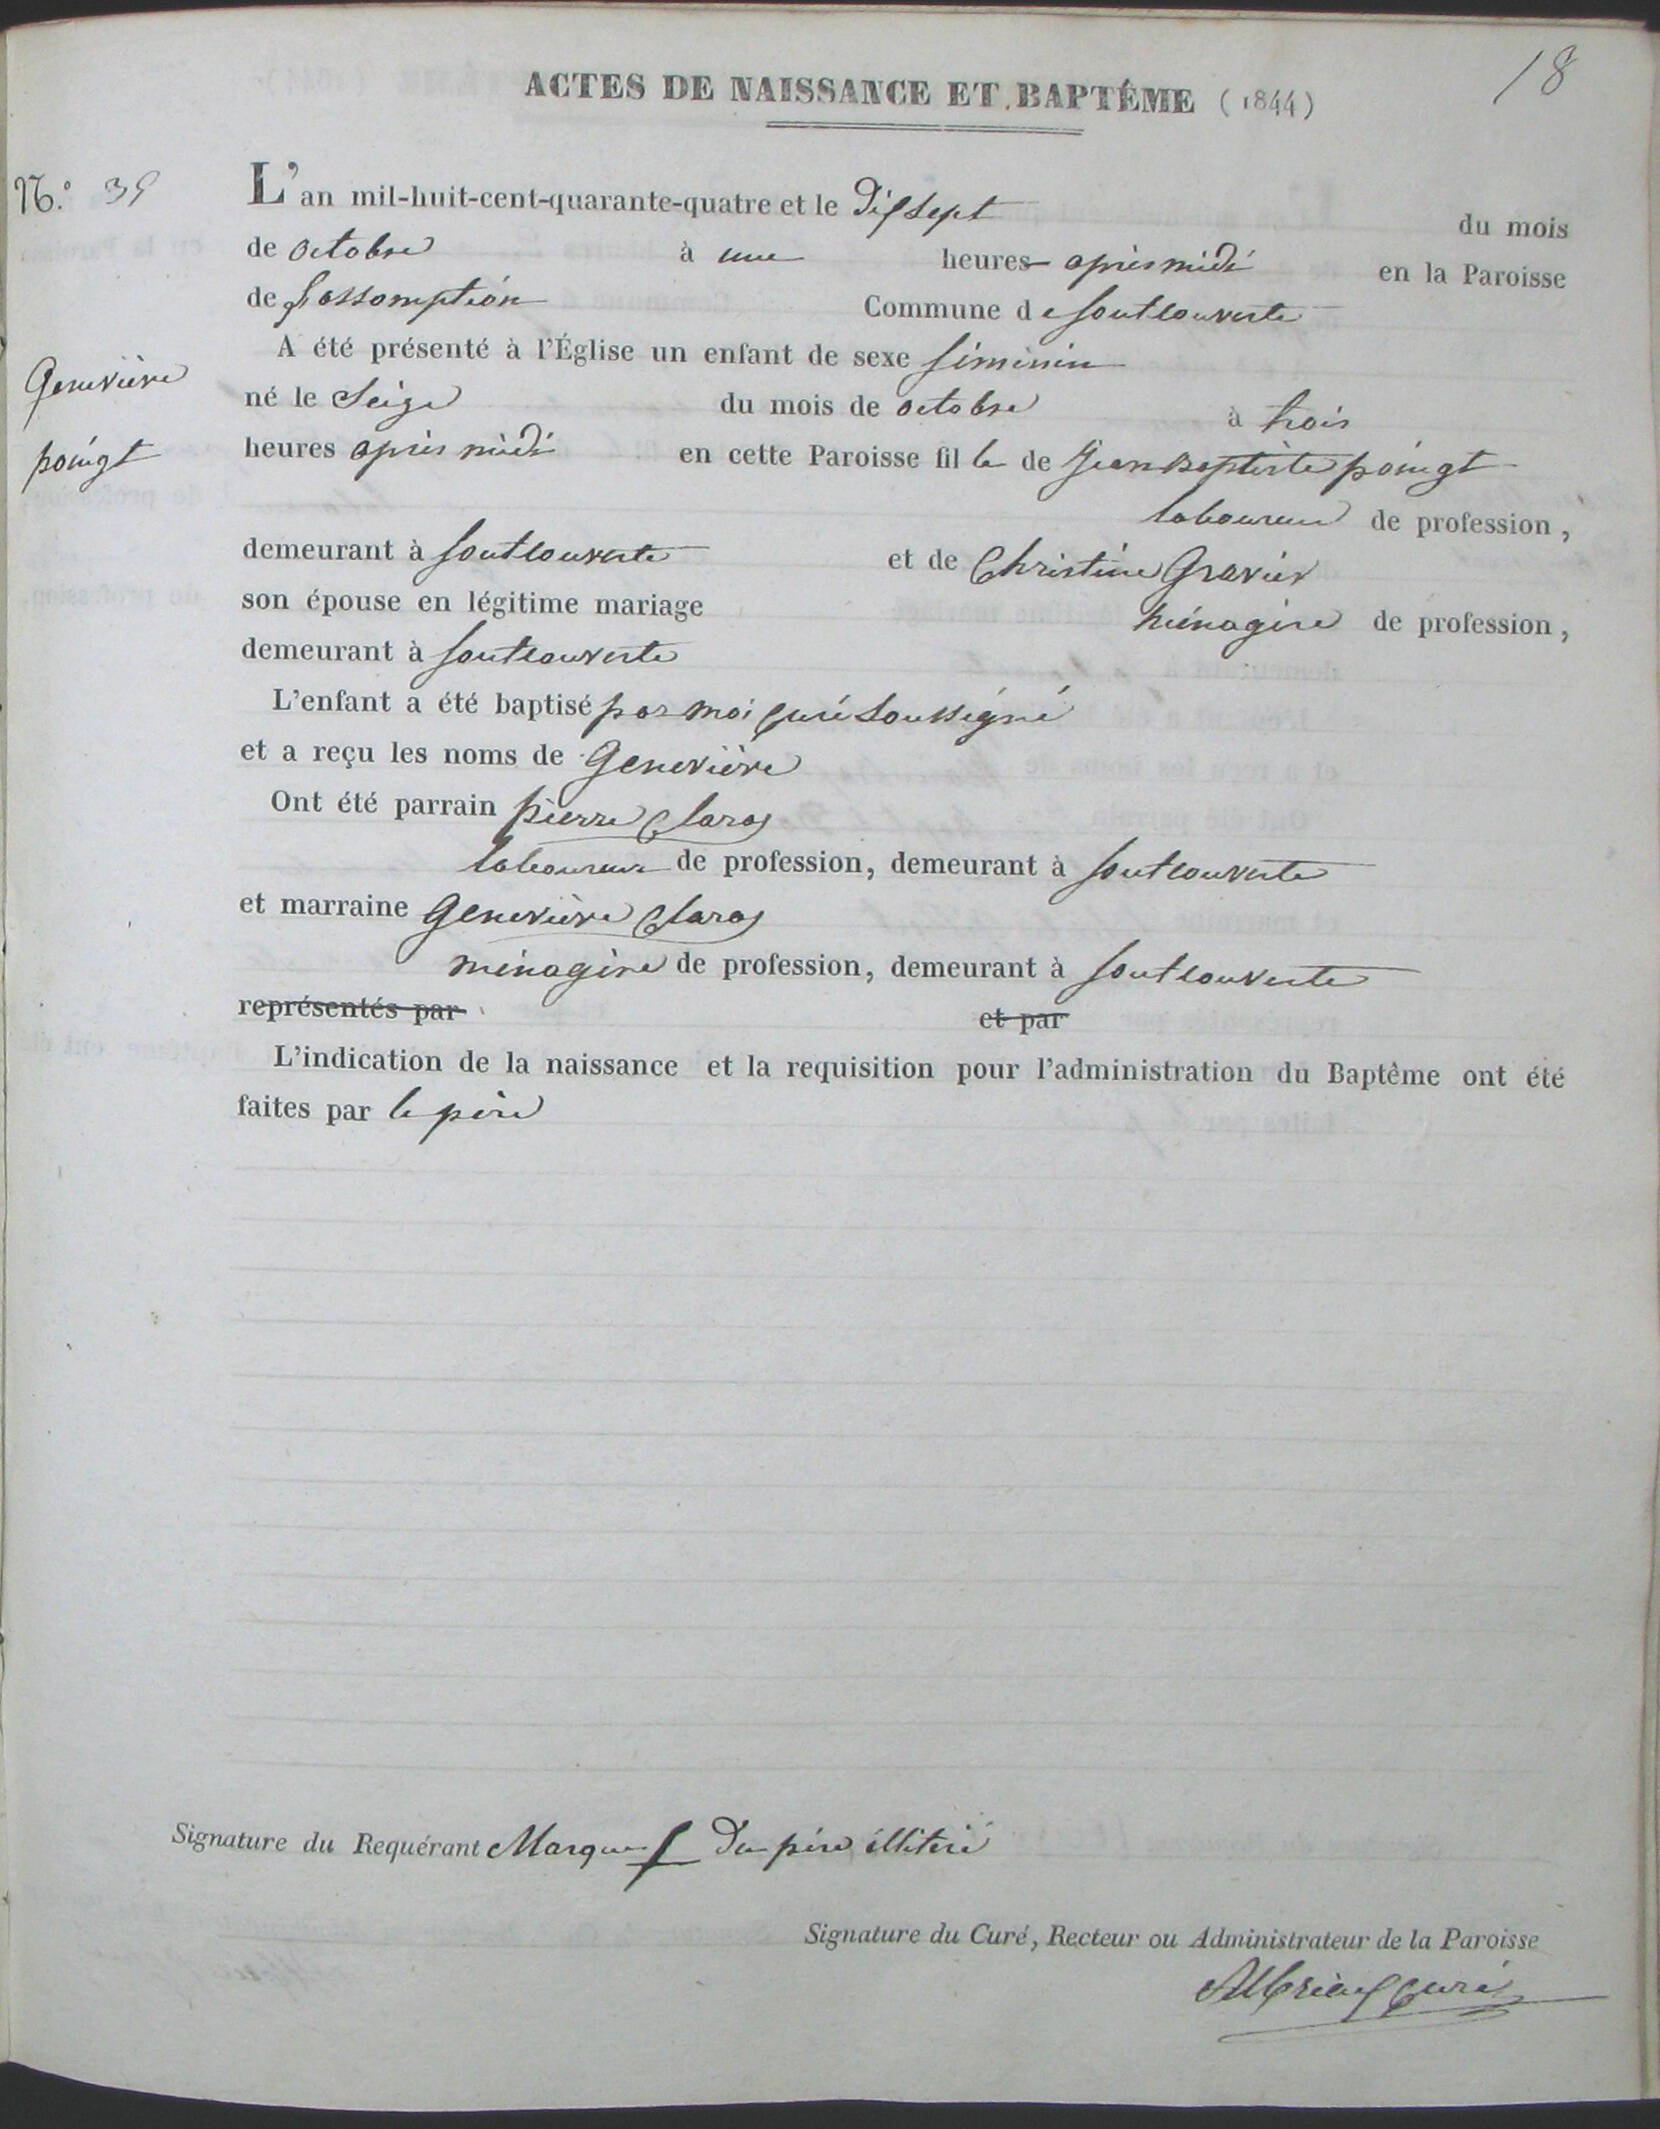 18
ACTES DE NAISSANCE ET BAPTÊME (1844)
N.o 39
L'an mil-huit-cent-quarante-quatre et le Dixsept du mois
de octobre à une heures après midi en la Paroisse
de l'assomption Commune de fontcouverte
A été présenté à l'Église un enfant de sexe féminin
Geneviève
né le Seize du mois de octobre à trois
poingt
heures après midi en cette Paroisse fille de Jean Baptiste poingt
laboureur de profession,
demeurant à fontcouverte et de Christine Gravier
son épouse en légitime mariage ménagère de profession,
demeurant à fontcouverte
L'enfant a été baptisé par moi curé soussigné
et a reçu les noms de Geneviève
Ont été parrain pierre Claraz
laboureur de profession, demeurant à fontcouverte
et marraine Geneviève Claraz
ménagère de profession, demeurant à fontcouverte
représentés par et par
L'indication de la naissance et la requisition pour l'administration du Baptême ont été
faites par le père
Signature du Requérant Marque + Du père illitéré
Signature du Curé, Recteur ou Administrateur de la Paroisse
curé